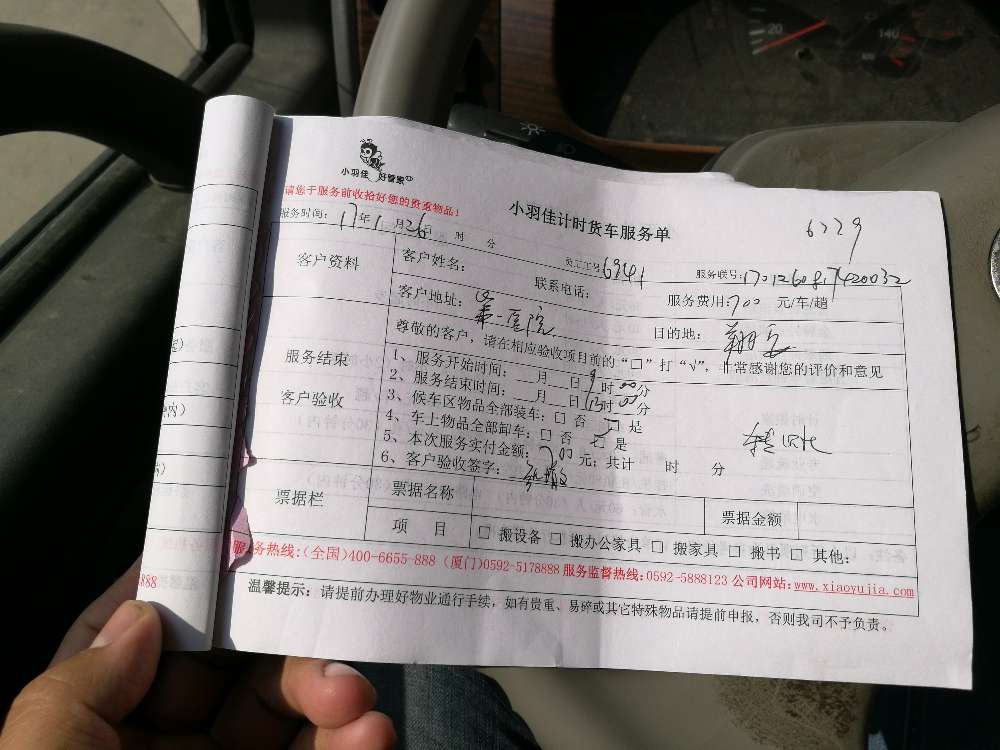 小羽佳 好管家
请您于服务前收拾好您的贵重物品!
小羽佳计时货车服务单
6229
服务时间: 17年1月26日 时 分
员工工号: 6941
服务联号:
客户资料
客户姓名:
联系电话:
服务费用: 700 元/车/趟
客户地址: 第一医院
目的地: 翔安
尊敬的客户,请在相应验收项目前的“□”打“√”,非常感谢您的评价和意见
服务结束
客户验收
1、服务开始时间: 月 日9时00分
2、服务结束时间: 月 日 时00分
3、候车区物品全部装车: □ 否 □ 是
4、车上物品全部卸车: □ 否 □ 是
5、本次服务实付金额: 700元; 共计 时 分
6、客户验收签字:
票据栏
票据名称
票据金额
项 目
□ 搬设备 □ 搬办公家具 □ 搬家具 □ 搬书 □ 其他:
服务热线:(全国)400-6655-888 (厦门)0592-5178888 服务监督热线:0592-5888123 公司网站:www.xiaoyujia.com
888
温馨提示: 请提前办理好物业通行手续,如有贵重、易碎或其它特殊物品请提前申报,否则我司不予负责。
20
140